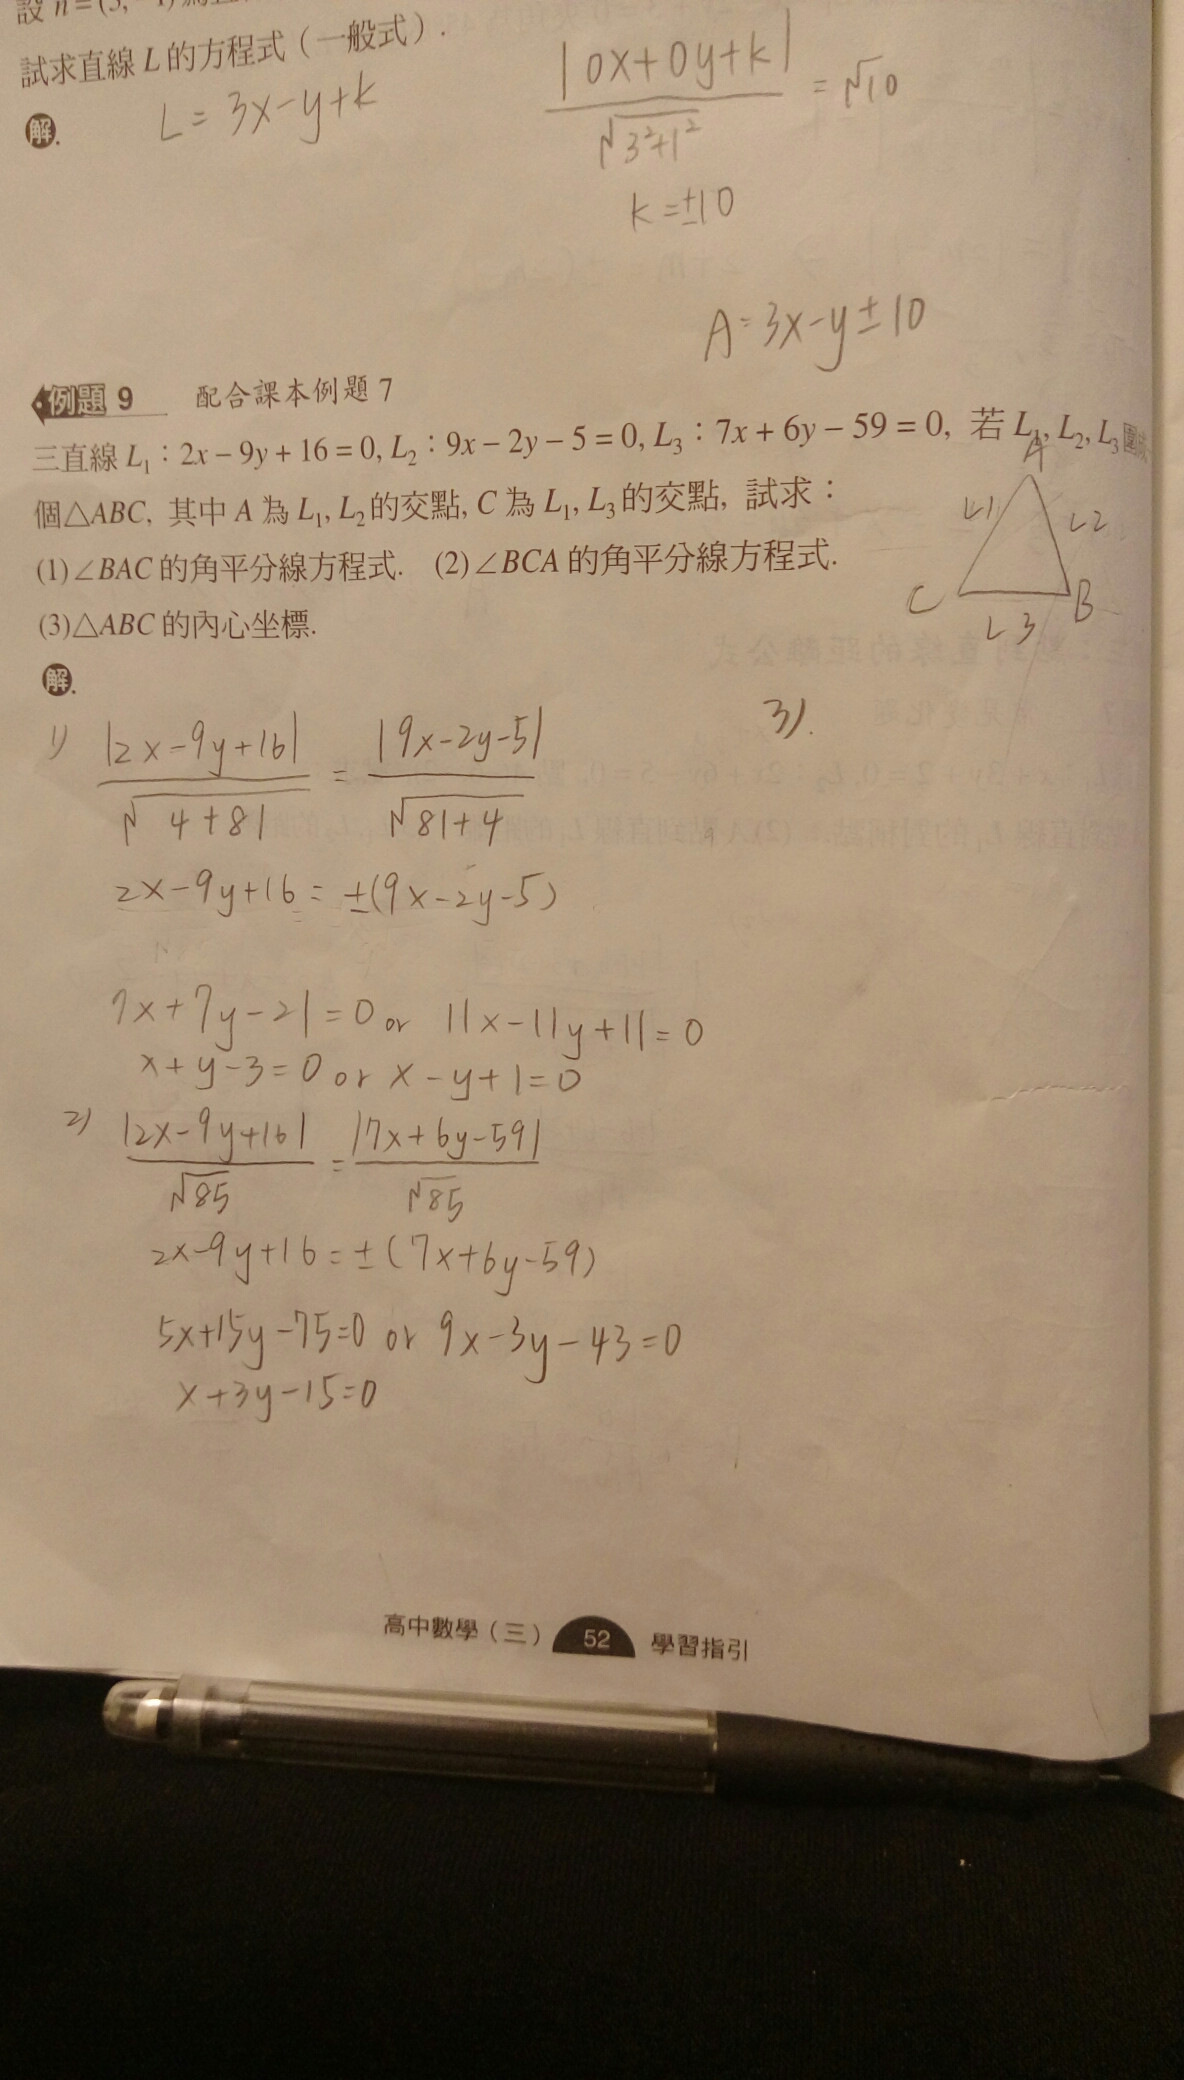 設 n = (3, -1) 為
試求直線 L 的方程式（一般式）.
解.
L = 3x-y+k
|0x+0y+k| / √3²+1² = √10
k = ±10
A = 3x-y±10
例題 9 配合課本例題 7
三直線 L₁：2x – 9y + 16 = 0, L₂：9x – 2y – 5 = 0, L₃：7x + 6y – 59 = 0, 若 L₁, L₂, L₃ 圍成
個△ABC, 其中 A 為 L₁, L₂ 的交點, C 為 L₁, L₃ 的交點, 試求：
(1)∠BAC 的角平分線方程式. (2)∠BCA 的角平分線方程式.
(3)△ABC 的內心坐標.
A
L1
L2
C
B
L3
解.
1) |2x-9y+16| / √4+81 = |9x-2y-5| / √81+4
2x-9y+16 = ±(9x-2y-5)
7x+7y-21=0 or 11x-11y+11=0
x+y-3=0 or x-y+1=0
2) |2x-9y+16| / √85 = |7x+6y-59| / √85
2x-9y+16 = ±(7x+6y-59)
5x+15y-75=0 or 9x-3y-43=0
x+3y-15=0
3).
高中數學（三） 52 學習指引